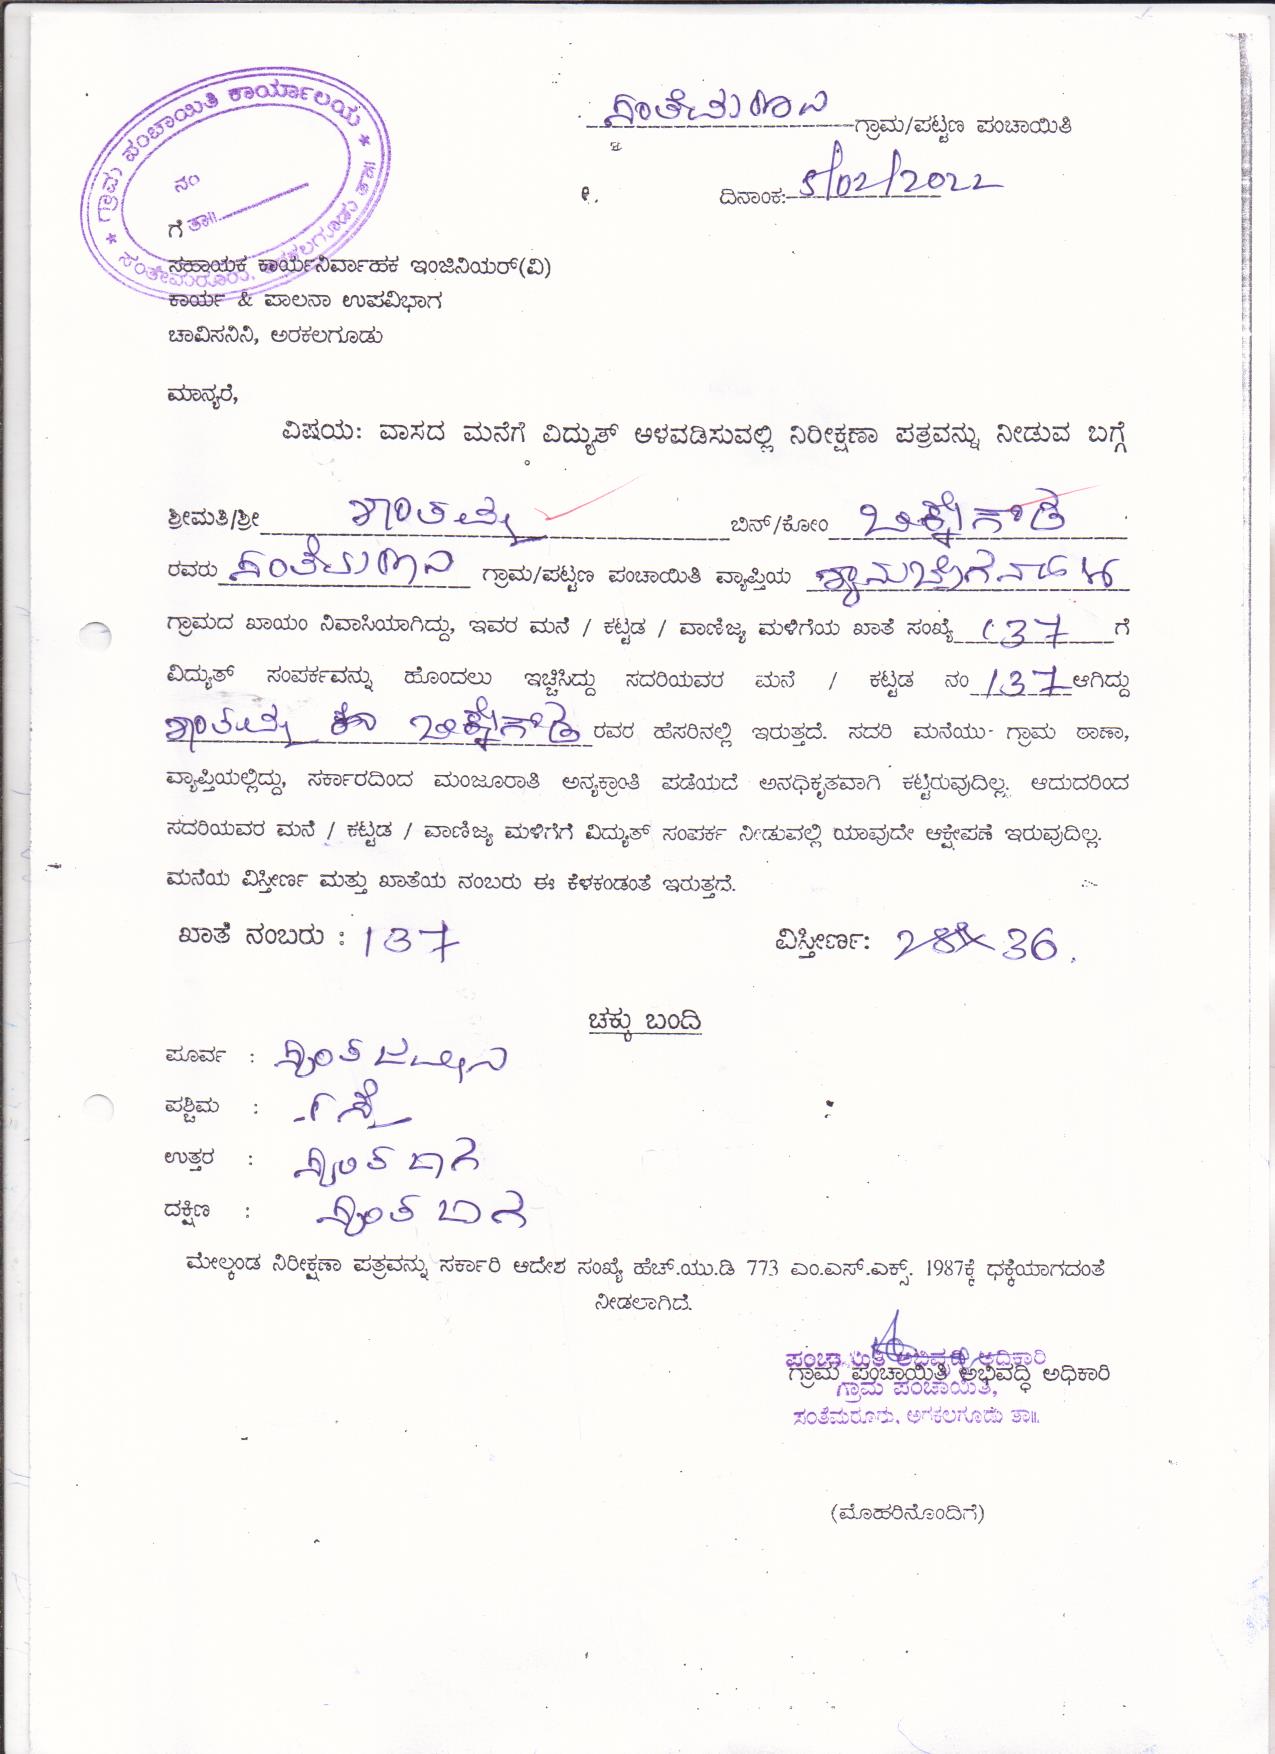 ಗ್ರಾಮ ಪಂಚಾಯಿತಿ ಕಾರ್ಯಾಲಯ
ನಂ
ತಾ॥
ಸಂತೇಮರೂರು, ಅರಕಲಗೂಡು ತಾ॥
ಸಂತೆಮರೂರು ಗ್ರಾಮ/ಪಟ್ಟಣ ಪಂಚಾಯಿತಿ
ದಿನಾಂಕ: 5/02/2022
ಗೆ
ಸಹಾಯಕ ಕಾರ್ಯನಿರ್ವಾಹಕ ಇಂಜಿನಿಯರ್(ವಿ)
ಕಾರ್ಯ & ಪಾಲನಾ ಉಪವಿಭಾಗ
ಚಾವಿಸನಿನಿ, ಅರಕಲಗೂಡು
ಮಾನ್ಯರೆ,
ವಿಷಯ: ವಾಸದ ಮನೆಗೆ ವಿದ್ಯುತ್ ಅಳವಡಿಸುವಲ್ಲಿ ನಿರೀಕ್ಷಣಾ ಪತ್ರವನ್ನು ನೀಡುವ ಬಗ್ಗೆ
ಶ್ರೀಮತಿ/ಶ್ರೀ ಶಾಂತಮ್ಮ ಬಿನ್/ಕೋಂ
ರವರು ಸಂತೆಮರೂರು ಗ್ರಾಮ/ಪಟ್ಟಣ ಪಂಚಾಯಿತಿ ವ್ಯಾಪ್ತಿಯ
ಗ್ರಾಮದ ಖಾಯಂ ನಿವಾಸಿಯಾಗಿದ್ದು, ಇವರ ಮನೆ / ಕಟ್ಟಡ / ವಾಣಿಜ್ಯ ಮಳಿಗೆಯ ಖಾತೆ ಸಂಖ್ಯೆ 137 ಗೆ
ವಿದ್ಯುತ್ ಸಂಪರ್ಕವನ್ನು ಹೊಂದಲು ಇಚ್ಚಿಸಿದ್ದು ಸದರಿಯವರ ಮನೆ / ಕಟ್ಟಡ ನಂ 137 ಆಗಿದ್ದು
ಶಾಂತಮ್ಮ ಕೋ ರವರ ಹೆಸರಿನಲ್ಲಿ ಇರುತ್ತದೆ. ಸದರಿ ಮನೆಯು- ಗ್ರಾಮ ಠಾಣಾ,
ವ್ಯಾಪ್ತಿಯಲ್ಲಿದ್ದು, ಸರ್ಕಾರದಿಂದ ಮಂಜೂರಾತಿ ಅನ್ಯಕ್ರಾಂತಿ ಪಡೆಯದೆ ಅನಧಿಕೃತವಾಗಿ ಕಟ್ಟಿರುವುದಿಲ್ಲ. ಆದುದರಿಂದ
ಸದರಿಯವರ ಮನೆ / ಕಟ್ಟಡ / ವಾಣಿಜ್ಯ ಮಳಿಗೆಗೆ ವಿದ್ಯುತ್ ಸಂಪರ್ಕ ನೀಡುವಲ್ಲಿ ಯಾವುದೇ ಆಕ್ಷೇಪಣೆ ಇರುವುದಿಲ್ಲ.
ಮನೆಯ ವಿಸ್ತೀರ್ಣ ಮತ್ತು ಖಾತೆಯ ನಂಬರು ಈ ಕೆಳಕಂಡಂತೆ ಇರುತ್ತದೆ.
ಖಾತೆ ನಂಬರು : 137 ವಿಸ್ತೀರ್ಣ: 28x36.
ಚಕ್ಕು ಬಂದಿ
ಪೂರ್ವ : ಸ್ವಂತ ಜಮೀನು
ಪಶ್ಚಿಮ : ರಸ್ತೆ
ಉತ್ತರ : ಸ್ವಂತ ಜಾಗ
ದಕ್ಷಿಣ : ಸ್ವಂತ
ಮೇಲ್ಕಂಡ ನಿರೀಕ್ಷಣಾ ಪತ್ರವನ್ನು ಸರ್ಕಾರಿ ಆದೇಶ ಸಂಖ್ಯೆ ಹೆಚ್.ಯು.ಡಿ 773 ಎಂ.ಎಸ್.ಎಕ್ಸ್. 1987ಕ್ಕೆ ಧಕ್ಕೆಯಾಗದಂತೆ
ನೀಡಲಾಗಿದೆ.
ಪಂಚಾಯಿತಿ ಅಭಿವೃದ್ಧಿ ಅಧಿಕಾರಿ
ಗ್ರಾಮ ಪಂಚಾಯಿತಿ ಅಭಿವದ್ಧಿ ಅಧಿಕಾರಿ
ಗ್ರಾಮ ಪಂಚಾಯಿತಿ,
ಸಂತೆಮರೂರು, ಅರಕಲಗೂಡು ತಾ॥.
(ಮೊಹರಿನೊಂದಿಗೆ)